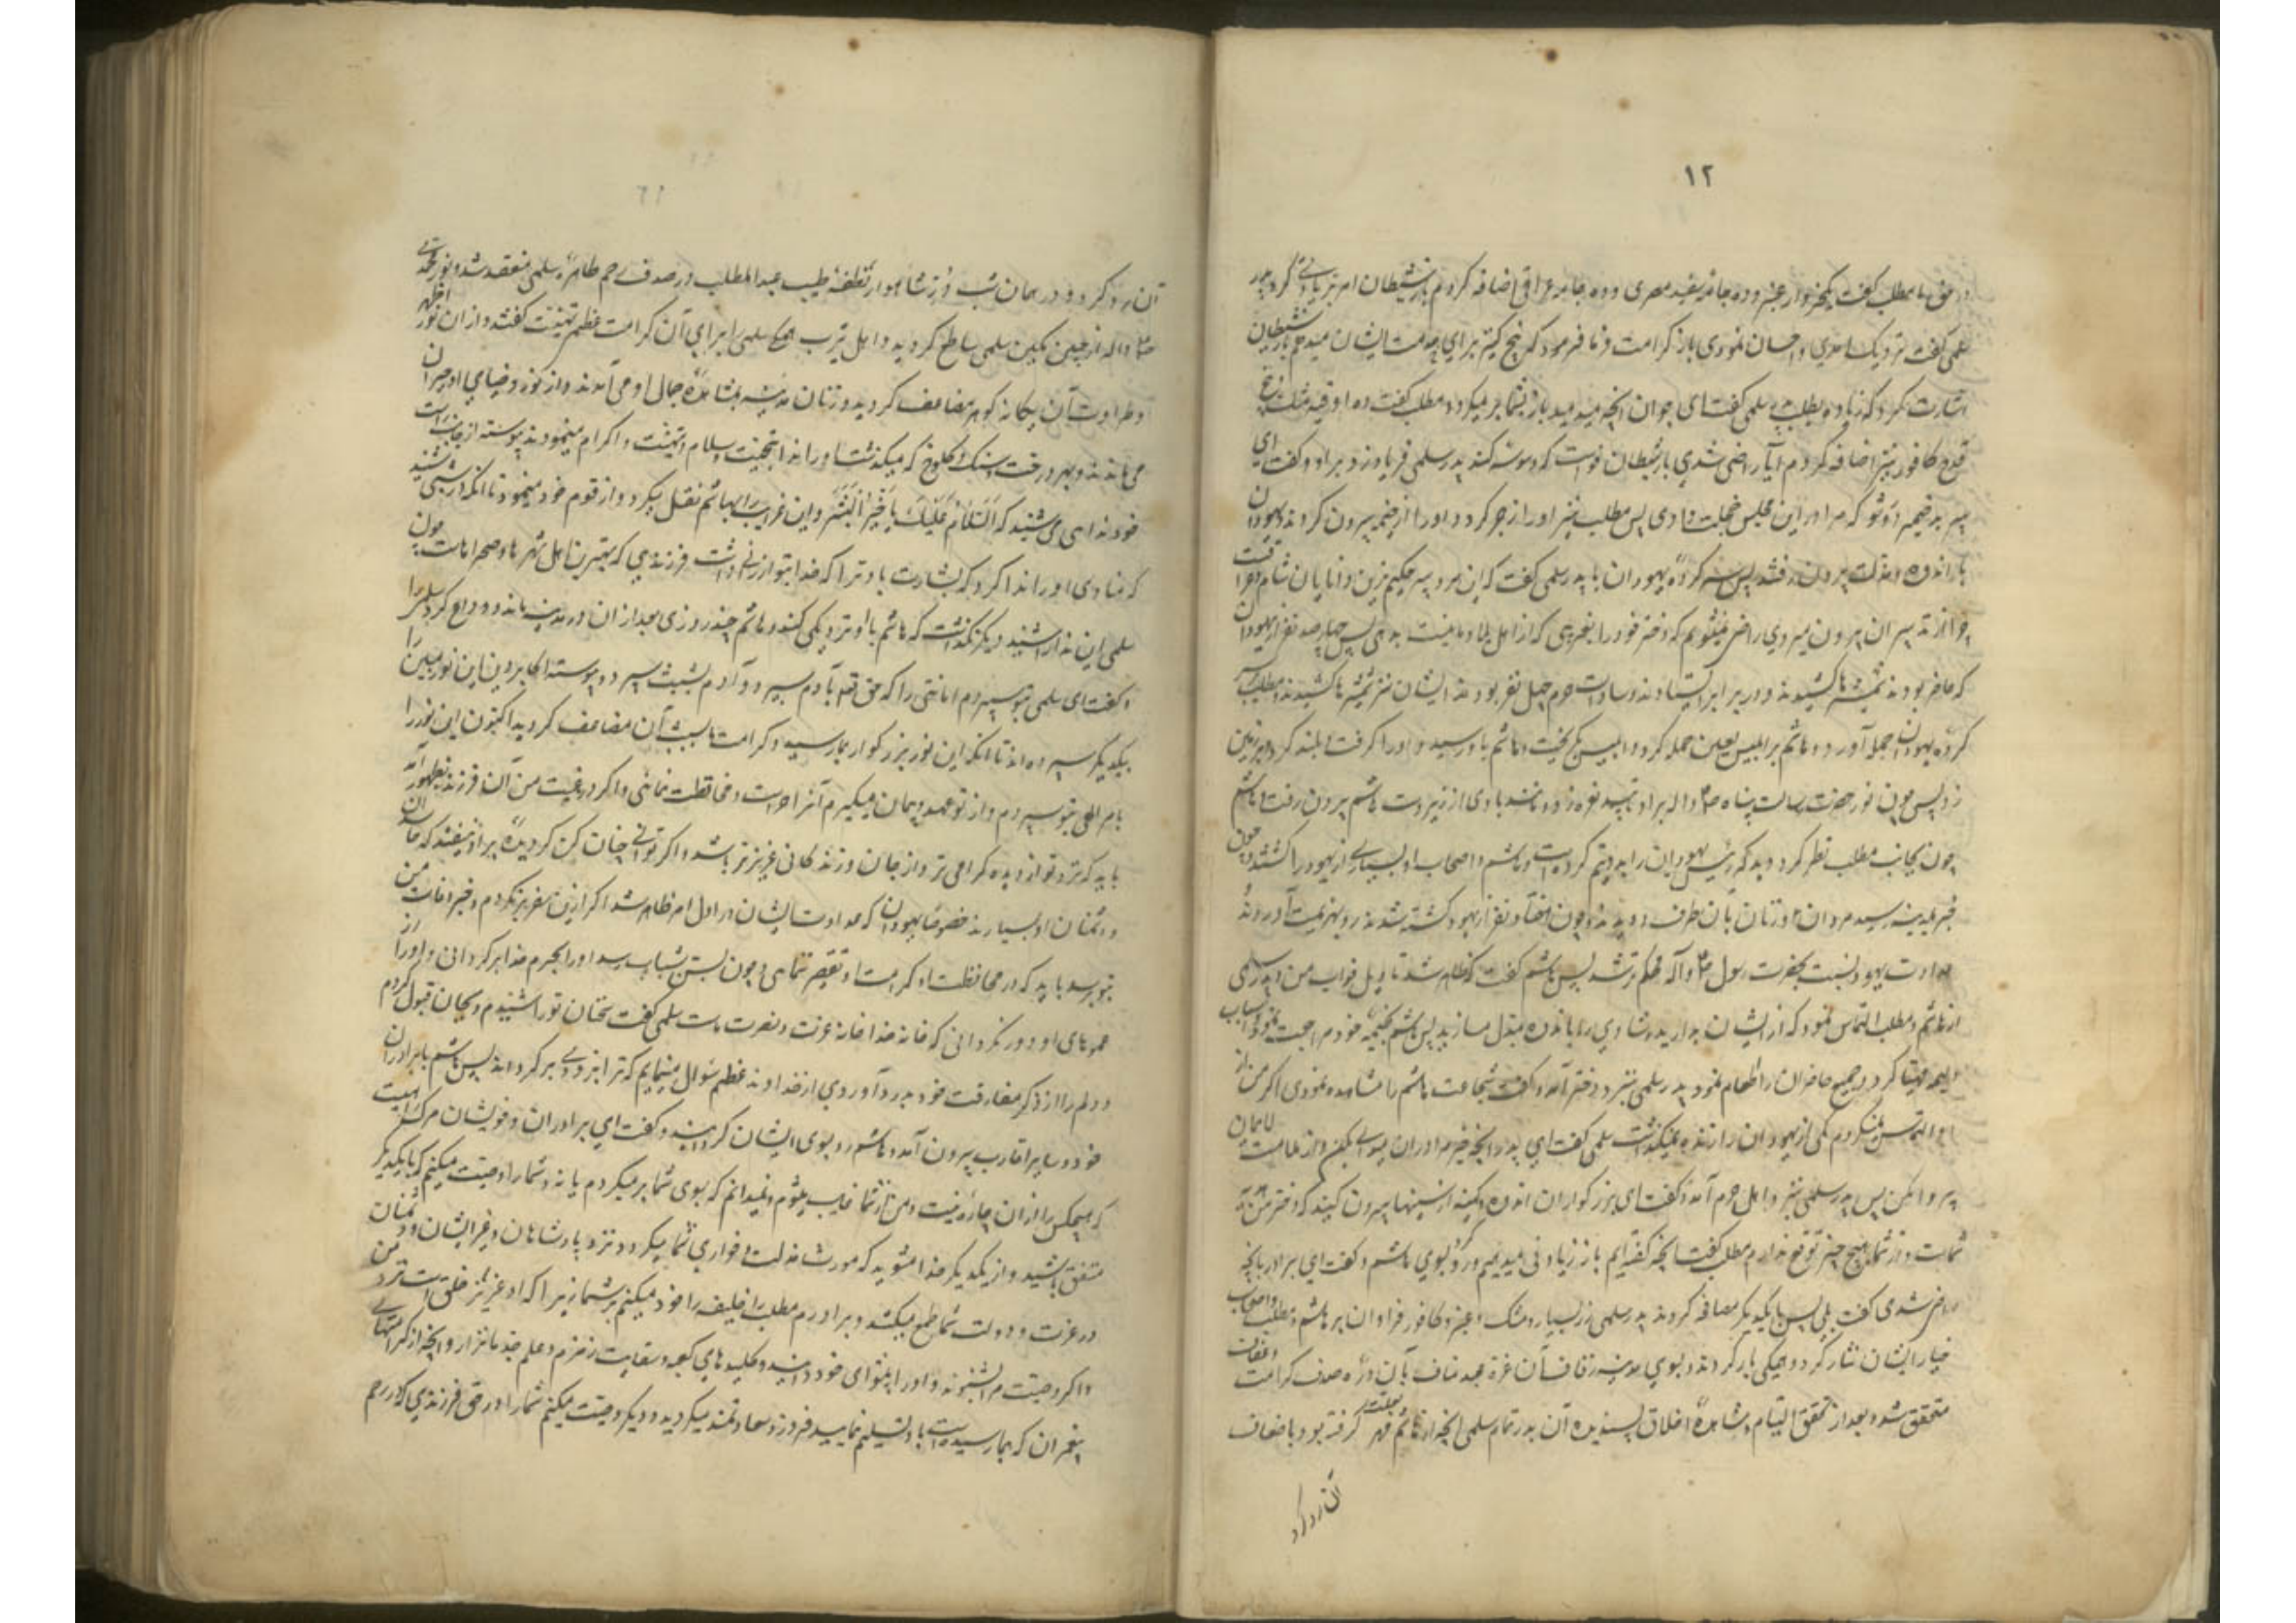 ۱۲
مطلب گفت یکخروار عنبر و ده جامهٔ سفید مصری و ده جامهٔ عراقی اضافه کردم باز شیطان امر بزیادتی کرد پدر
سلمی گفت نزدیک آمدی و احسان نمودی باز کرامت فرما فرمود که پنج کنیز برای خدمت ایشان میدهم باز شیطان
اشارت کرد که زیاده بطلب پدر سلمی گفت ای جوان آنچه میدهید باز بشما بر میگردد مطلب گفت ده اوقیه مشک و پنج
قدح کافور نیز اضافه کردم آیا راضی شدی باز شیطان خواست که وسوسه کند پدر سلمی فریاد زد بر او و گفت ای
پیر بد ضمیر دور شو که مرا در این مجلس خجلت دادی پس مطلب نیز او را زجر کرد و او را از خیمه بیرون کردند و یهودان
با اندوه و مذلت بیرون رفتند پس سرکردهٔ یهودان با پدر سلمی گفت که این مرد پیر حکیم‌ترین دانایان شام و عراقست
چرا از تدبیر آن بیرون میروی راضی نمیشویم که دختر خود را بغریبی که از اهل بلاد ما نیست بدهی پس چهار صد نفر از یهودان
که حاضر بودند شمشیرها کشیدند و در برابر ایستادند و سادات حرم چهل نفر بودند ایشان نیز شمشیرها کشیدند و مطلب بر سر
کردهٔ یهودان حمله آورد و هاشم بر ابلیس لعین حمله کرد و ابلیس بگریخت و هاشم باو رسید و او را گرفت و بلند کرد و بر زمین
زد پس چون نور حضرت رسالت پناه صلّم و آله بر او تابید نعره زد و مانند بادی از زیر دست هاشم بیرون رفت و هاشم
چون بجانب مطلب نظر کرد دید که رئیس یهودان را بدو نیم کرده است و هاشم و اصحاب او بسیاری از یهود را کشتند و چون
خبر بمدینه رسید مردان و زنان بآن طرف دویدند و چون هفتاد نفر از یهود کشته شدند رو بهزیمت آوردند و
عداوت یهود نسبت بحضرت رسول صلّم و آله محکم‌تر شد پس هاشم گفت که ظاهر شد تاویل خواب من و پدر سلمی
از هاشم و مطلب التماس نمود که از ایشان بدارید و شادی را باندوه مبدل مسازید پس هاشم بخیمهٔ خود مراجعت نمود و اسباب
ولیمه مهیا کرد و جمیع حاضران را طعام نمود پدر سلمی بنزد دختر آمد و گفت شجاعت هاشم را مشاهده نمودی اگر من از
او التماس نمیکردم یکی از یهودان را زنده نمیگذاشت سلمی گفت ای پدر آنچه خیر مادران میدانی بکن و از ملامت لائمان
پروا مکن پس پدر سلمی بنزد اهل حرم آمد و گفت ای بزرگواران اندوه و کینه از سینها بیرون کنید که دختر من هدیهٔ
شماست و از شما هیچ چیز توقع ندارم مطلب گفت آنچه گفته‌ایم باز زیاد می‌دهیم و رو بسوی هاشم کرد و گفت ای برادر بآنچه
راضی شدی گفت بلی پس با یکدیگر مصافحه کردند پدر سلمی زر بسیار و مشک و عنبر و کافور فراوان بر هاشم و مطلب و اصحاب
ایشان نثار کرد و همگی بار کردند و بسوی مدینه زفاف آن غرهٔ عبد مناف بآن درهٔ صدف کرامت و عفاف
متحقق شد و بعد از تحقق التیام و مشاهدهٔ اخلاق پسندیده آن بدر تمام سلمی آنچه از هاشم بعلت مهر گرفته بود باضعاف
آن رد کرد
آن رد کرد و در همان شب دُرّ شاهوار نطفهٔ طیب عبدالمطلب در صدف رحم طاهرهٔ سلمی منعقد شد و نور محمدی
صلّم و آله از جبین مبین سلمی ساطع گردید و اهل یثرب همگی سلمی را برای آن کرامت عظمی تهنیت گفتند و از آن نور اظهر
و طراوت آن یگانه گوهر مضاعف گردید و زنان مدینه بمشاهدهٔ جمال او می‌آمدند و از نور و ضیای او حیران
می‌ماندند و بهر درخت و سنگ و کلوخ که میگذشت او را ندا بتحیت و سلام و تهنیت و اکرام مینمودند و پیوسته از جانب راست
خود ندائی می‌شنید که اَلسَّلامُ عَلَیْکَ یا خَیْرَ الْبَشَر و این غرایب را بهاشم نقل میکرد و از قوم خود مینمود تا آنکه در شبی شنید
که منادی او را ندا کرد که بشارت باد ترا که خدا بتو ارزانی داشت فرزندی که بهترین اهل شهرها و صحراهاست چون
سلمی این ندا را شنید دیگر نگذاشت که هاشم با او نزدیکی کند و هاشم چند روزی بعد از آن در مدینه ماند و وداع کرد سلمی را
و گفت ای سلمی بتو سپردم امانتی را که حق تعالی بآدم سپرد و آدم بشیث سپرد و پیوسته اکابر دین این نور مبین را
بیکدیگر سپرده‌اند تا آنکه این نور بزرگوار بما رسید و کرامت ما بسبب آن مضاعف گردید اکنون این نور را
بامر الهی بتو سپردم و از تو عهد و پیمان میگیرم که آنرا حراست و محافظت نمائی و اگر در غیبت من آن فرزند بظهور آید
باید که نزد تو از دیده گرامی‌تر و از جان و زندگانی عزیزتر باشد و اگر توانی چنان کن که دیدهٔ بر او نیفتد که حاسدان
و دشمنان او بسیارند خصوصاً یهودان که عداوت ایشان در اول امر ظاهر شد و اگر ازین سفر برنگردم و خبر وفات من
بتو برسد باید که در محافظت و کرامت او تقصیر ننمائی و چون بسنّ شباب رسد او را بحرم خدا برگردانی و او را از
عموهای او دور نگردانی که خانه خدا خانه عزت و نصرت ماست سلمی گفت سخنان تو را شنیدم و بجان قبول کردم
و دلم را از ذکر مفارقت خود بدرد آوردی از خداوند عظیم سؤال مینمایم که ترا بزودی برگرداند پس هاشم با برادران
خود و سایر اقارب بیرون آمد و هاشم رو بسوی ایشان گردانید و گفت ای برادران و خویشان مرگ راهیست
که هیچکس را از آن چاره نیست و من از شما غایب میشوم و نمیدانم که بسوی شما بر میگردم یا نه و شما را وصیت میکنم که با یکدیگر
متفق باشید و از یکدیگر جدا مشوید که مورث مذلت و خواری شما میگردد نزد پادشاهان و غیر ایشان و دشمنان
در عزت و دولت شما طمع میکنند و برادرم مطلب را خلیفه خود میکنم بر شما زیرا که او عزیزتر خلق است نزد من
و اگر وصیت مرا بشنوید و او را پیشوای خود دانید و کلیدهای کعبه و سقایت زمزم و علم جد ما نزار و آنچه از کرامتهای
پیغمبران که بما رسیده است باو تسلیم نمایید فیروز و سعادتمند میگردید و دیگر وصیت میکنم شما را در حق فرزندی که در رحم